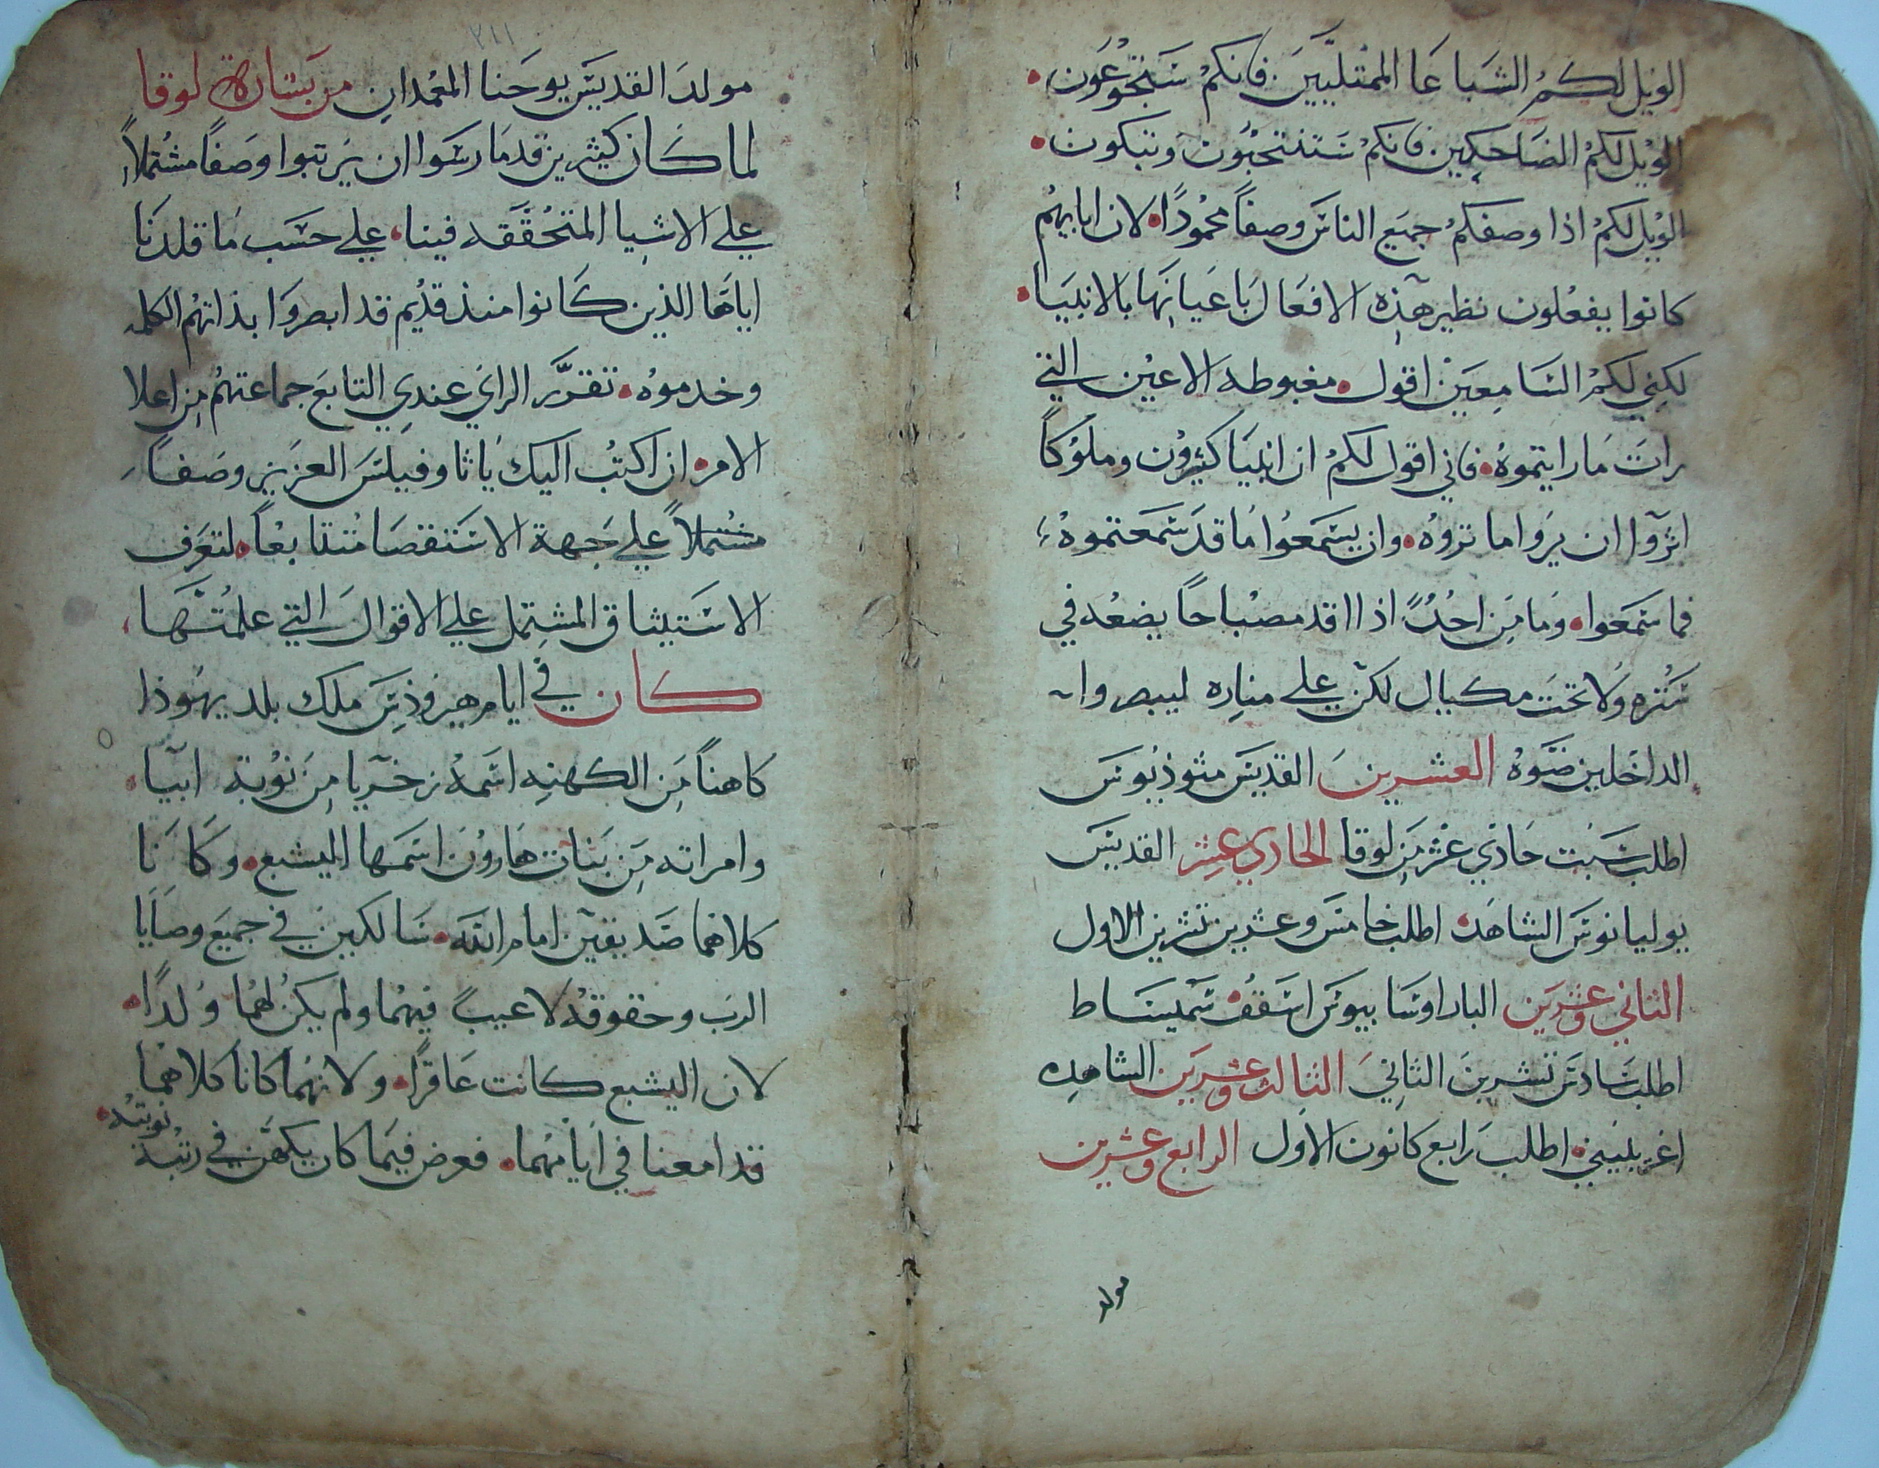 الويل لكم الشباعا الممتليين فانكم ستجوعون
الويل لكم الضاحكين فانكم ستنتحبون وتبكون
الويل لكم اذا وصفكم جميع الناس وصفاً محمودًا لان اباييهم
كانوا يفعلون نظير هذه الافعال باعيانها بالانبيا
لكني لكم السامعين اقول مغبوطه الاعين التي
رات ما رايتموه فاني اقول لكم ان انبيا كثيرون وملوكاً
اثروا ان يروا ما تروه وان يسمعوا ما قد سمعتموه
فما سمعوا وما من احدٌ اذا اقد مصباحاً يضعه في
سُتره ولا تحت مكيال لكن على مناره ليبصروا
الداخلين ضوه العشرين القديس مثوذيوس
اطلب سبت حادي عشر من لوقا الحادي عشر القديس
يوليانوس الشاهد اطلب خامس وعشرين تشرين الاول
الثاني وعشرين البار اوسابيوس اسقف سميساط
اطلب سادس تشرين الثاني الثالث وعشرين الشاهده
اغريبنيني اطلب رابع كانون الاول الرابع وعشرين
مولد
٢١١
مولد القديس يوحنا المعمدان من بشارة لوقا
لما كان كثيرين قد مارسوا ان يرتبوا وصفاً مشتملاً
على الاشيا المتحققه فينا على حسب ما قلدنا
اياها الذين كانوا منذ قديم قد ابصروا بذاتهم الكلمه
وخدموه تقرر الراي عندي التابع جماعتهم من اعلا
الامر ان اكتب اليك يا ثاوفيلس العزيز وصفاً
مشتملاً على جهة الاستقصا متتابعاً لتعرف
الاستيثاق المشتمل على الاقوال التي علمتها
كان في ايام هيروذس ملك بلد يهوذا
كاهناً من الكهنه اسمه زخريا من نوبة ابيا
وامراته من بنات هارون اسمها اليشبع وكانا
كلاهما صديقين امام الله سالكين في جميع وصايا
الرب وحقوقه لا عيب فيهما ولم يكن لهما ولدًا
لان اليشبع كانت عاقرًا ولانهما كانا كلاهما
قد امعنا في ايامهما فعرض فيما كان يكهن في رتبة
نوبته